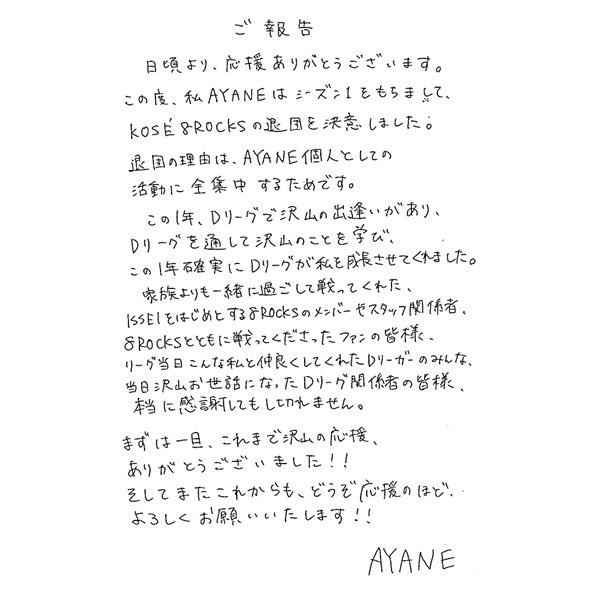 ご報告
日頃より、応援ありがとうございます。
この度、私AYANEはシーズン1をもちまして、
KOSÉ 8ROCKSの退団を決意しました。
退団の理由は、AYANE個人としての
活動に全集中するためです。
この1年、Dリーグで沢山の出逢いがあり、
Dリーグを通して沢山のことを学び、
この1年確実にDリーグが私を成長させてくれました。
家族よりも一緒に過ごして戦ってくれた、
ISSEIをはじめとする8ROCKSのメンバーやスタッフ関係者、
8ROCKSとともに戦ってくださったファンの皆様、
リーグ当日こんな私と仲良くしてくれたDリーガーのみんな、
当日沢山お世話になったDリーグ関係者の皆様、
本当に感謝してもしきれません。
まずは一旦、これまで沢山の応援、
ありがとうございました!!
そしてまたこれからも、どうぞ応援のほど、
よろしくお願いいたします!!
AYANE